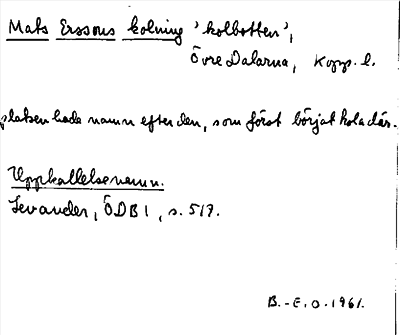 Mats Erssons kolning 'kolbotten',
Övre Dalarna, Kopp. l.
platsen hade namn efter den, som först börjat kola där.
Uppkallelsenamn.
Levander, ÖDB I, s. 517.
B.-E.O. 1961.